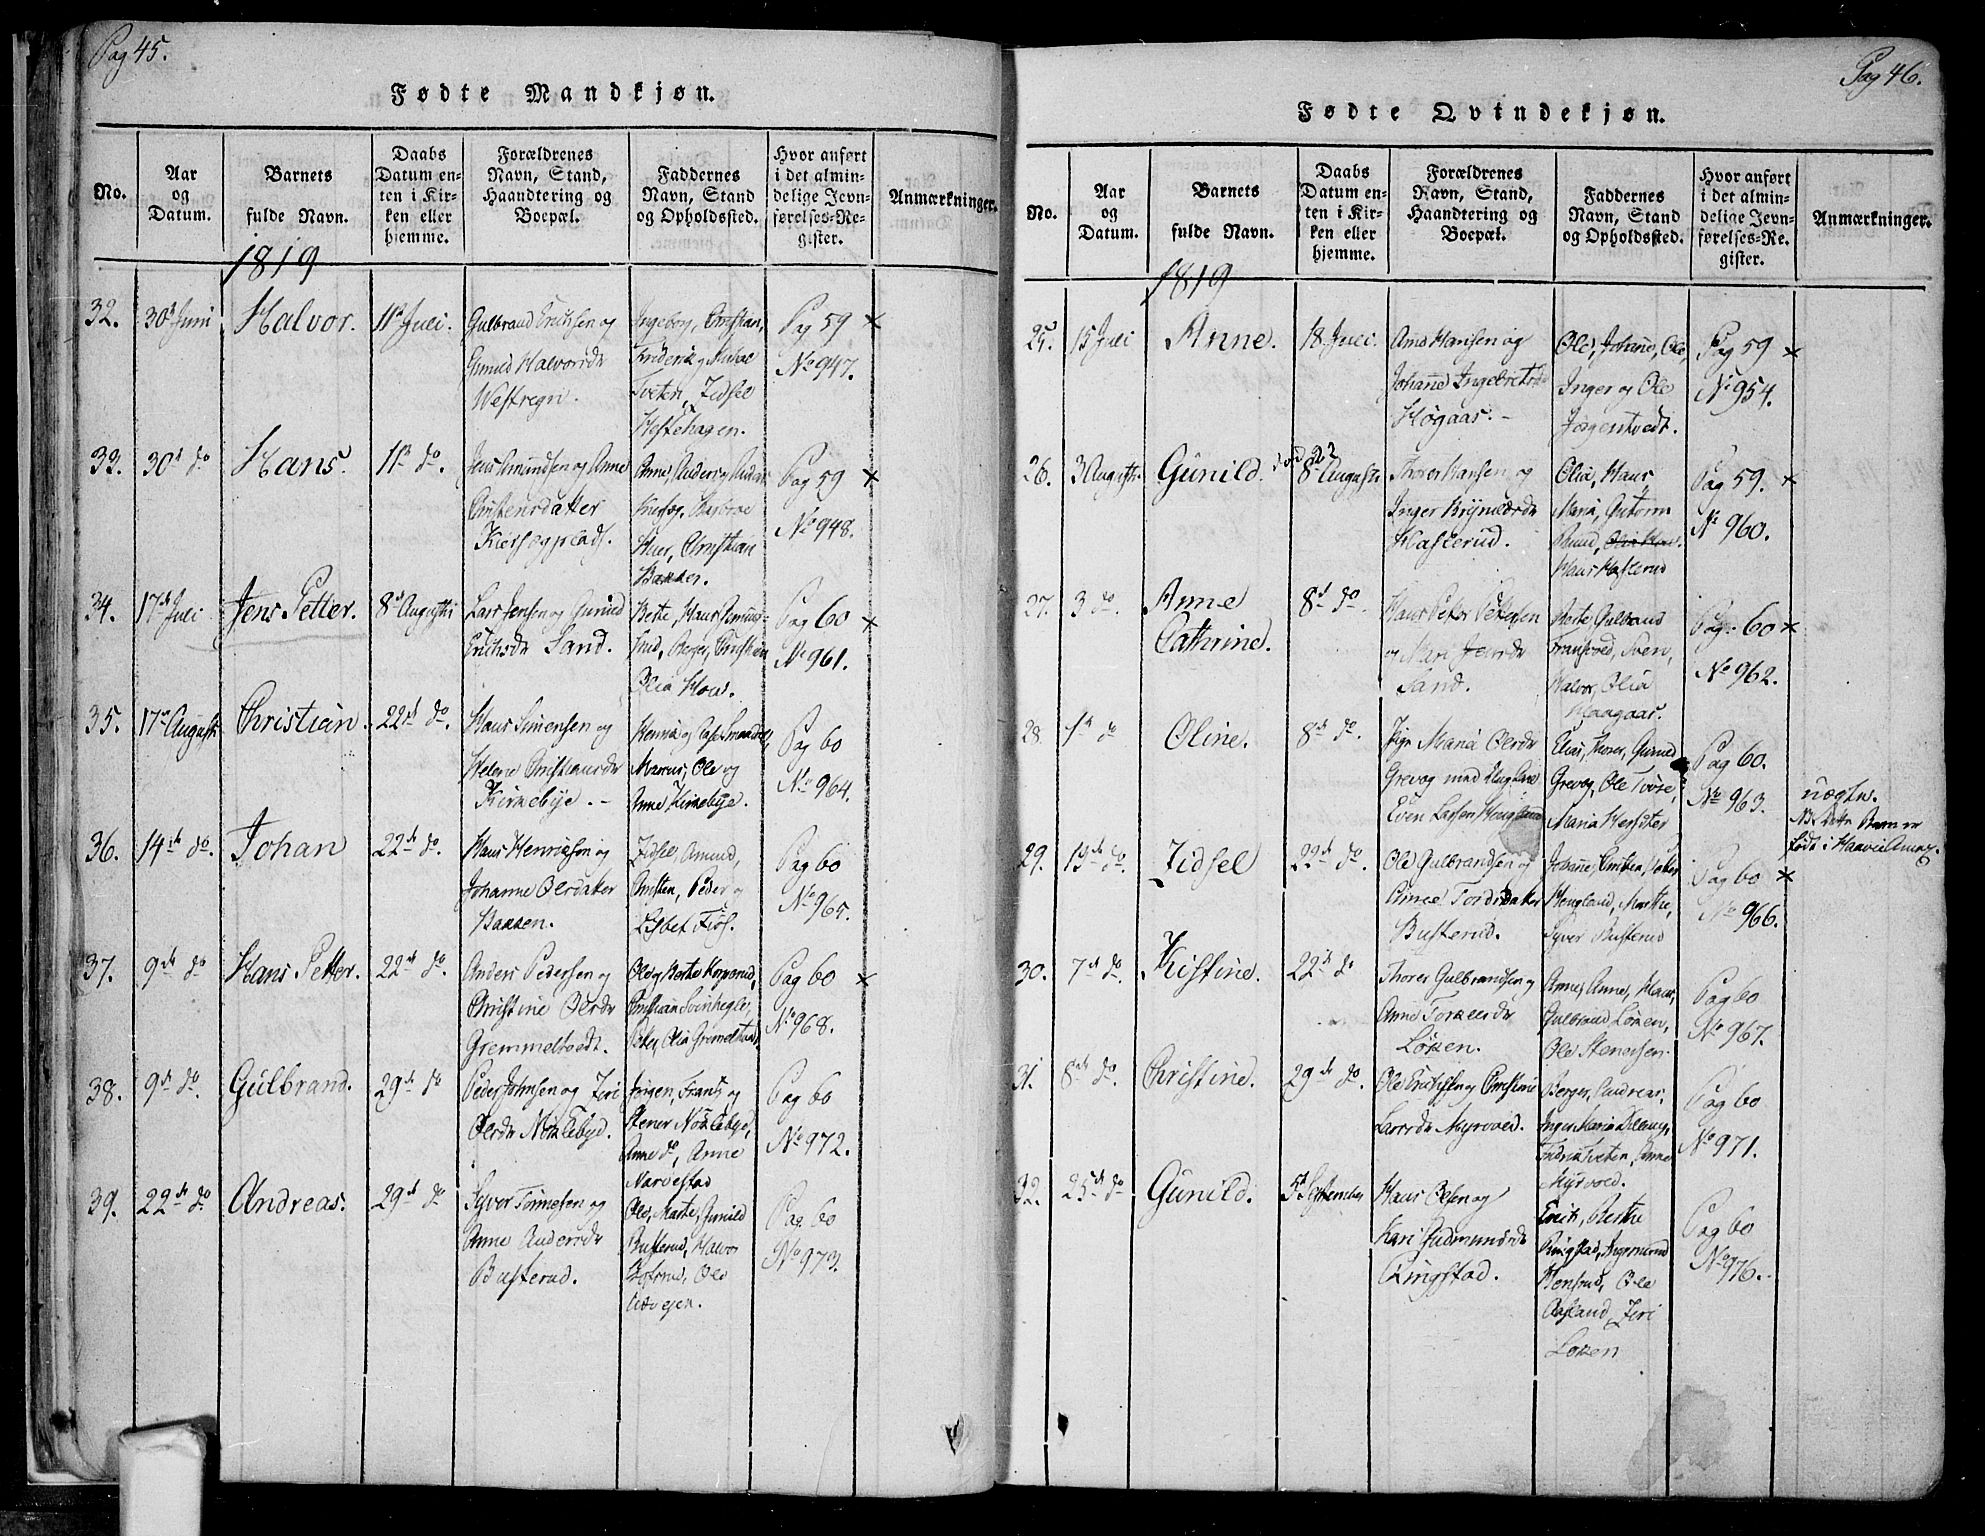 Pag 45.
Fødte Mandkjøn.
No.
Aar
og
Datum.
Barnets
fulde Navn.
Daabs
Datum en-
ten i Kir-
ken eller
hjemme.
Forældrenes
Navn, Stand,
Haandtering og
Boepæl.
Faddernes
Navn, Stand
og Opholdssted.
Hvor anført
i det almin-
delige Jevn-
førelses-Re-
gister.
Anmærkninger.
1819
32.
30d Juni
Halvor.
11te Juli.
Gulbrand Erichsen og
Gunild Halvorsdr
Westregn.
Ingeborg, Christian,
Friderik og
Tveten, Zidsel
Hestehagen.
Pag 59 ×
No 947.
33.
30d do
Hans.
11te do.
Jens Amundsen og Anne
Christensdatter
Kiersogplads.
Anne, Anders og
Kiersog,
Huer, Christian
Bakken.
Pag 59 ×
No 948.
34.
17de Juli
Jens Petter.
8de Augusti
Lars Jensen og Gunild
Erichsdr Sand.
Berte, Hans
Berger, Christian
Olia Hoas.
Pag 60 ×
No 961.
35.
17de Augusti
Christian.
22de do.
Hans Simensen og
Helene Christiansdr
Kirkebye. -
Marcus, Ole og
Anne Kirkebye.
Pag 60
No 964.
36.
14de do.
Johan
22de do.
Hans Henriksen og
Johanne Olsdatter
Bakken.
Zidsel, Amund,
Christen, Peder og
Lisbet Fiøs.
Pag 60
No 965.
37.
9de do
Hans Petter.
22de do.
Anders Pedersen og
Christine Olsdr
Gremmeltvedt.
Ole og Berte Korperud,
Christian Svinhegle,
Peter, Olia Gremeltved.
Pag 60 ×
No 968.
38.
9de do.
Gulbrand.
29de do
Peder Johnsen og Ziri
Olsdr Nøklebye.
Jørgen, Frants og
Stener Nøklebye,
Anne do, Anne
Narvestad
Pag 60
No 972.
39.
22de do
Andreas.
29de do
Syver Tommesen og
Anne Andersdr
Busterud.
Ole, Marte, Gunild
Busterud, Halvor
Ole
Pag. 60
No 973.
Pag 46.
Fødte Qvindekjøn.
No.
Aar
og
Datum.
Barnets
fulde Navn.
Daabs
Datum en-
ten i Kir-
ken eller
hjemme.
Forældrenes
Navn, Stand,
Haandtering og
Boepæl.
Faddernes
Navn, Stand
og Opholdssted.
Hvor anført
i det almin-
delige Jevn-
førelses-Re-
gister.
Anmærkninger.
1819
25.
15 Juli
Anne.
18 Juli.
Arne Hansen og
Johanne Ingebretsdr
Høgaas. -
Ole, Johanne, Ole,
Inger og Ole
Jørgentvedt.
Pag 59 ×
No 954.
26.
3 Augusti.
Gunild.
8de Augusti
Thores Hansen og
Inger Brynildsdr
Hasterud.
Olia, Hans,
Maria, Gutorm
Ruud,
Hans Hasterud
Pag 59. ×
No 960.
27.
3 do.
Anne
Cathrine.
8de do
Hans Peter Pettersen
og Kari Jensdr
Sand.
Berte, Gulbrand
Fransvold, Sven,
Halvor, Olia
Haagaas.
Pag. 60 ×
No 962.
28
1te do
Oline.
8de do.
Pige Maria Olsdr
Grevog med Ungkarl
Even Larsen Hougland
Elias, Thores, Gunild
Grevog, Ole Tvøse,
Maria
Pag 60.
No 963.
nægte.
NB Dette Barn er
født i
29.
19de do.
Zidsel
22de do.
Ole Gulbrandsen og
Anne Tordsdatter
Busterud.
Johanne, Christen,
Hougland, Marthe,
Syver Busterud
Pag 60 ×
No 966.
30.
7de do.
Kristine.
22de do
Thores Gulbrandsen og
Anne Torkelsdr
Løken.
Anne, Anne, Hans,
Gulbrand Løken,
Ole Stenersen.
Pag 60
No 967.
31.
8de do.
Christine.
29de do.
Ole Erichsen og Christine
Larsdr Myrvold.
Berger, Andreas,
Inger Maria Dillevig,
Tveten, Anne
Myrvold.
Pag 60
No 971.
32.
25de do
Gunild.
5te September
Hans Olsen og
Kari Gudmundsdr
Ringstad.
Erich, Berthe
Ringstad, Ingemund
Hensrud, Ole
Aasland, Ziri
Løken
Pag 60
No 976.